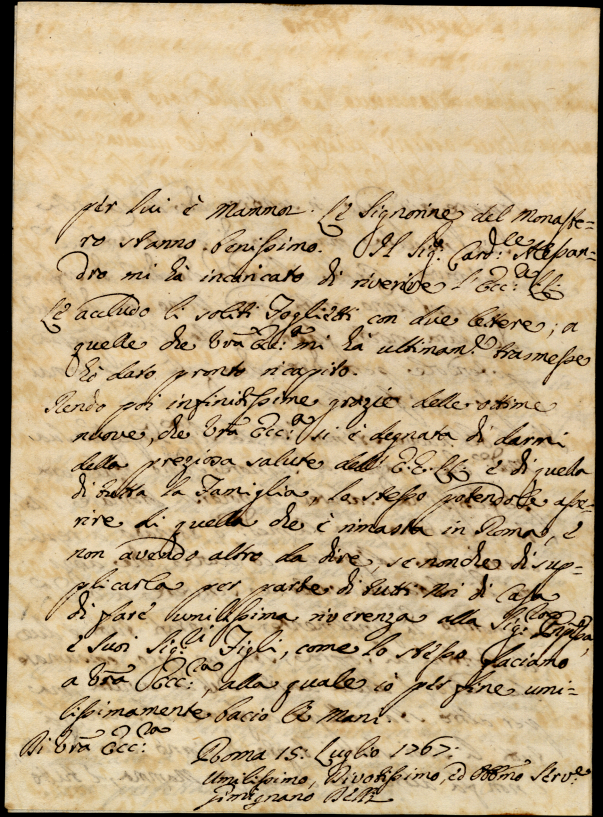 per lui è Mammon. Le Signorine del Monaste-
ro stanno benissimo. Il Sig.r Card.le Alessan-
dro mi hà incaricato di riverire l'Ecc.ze LL.
Le accludo li soliti Foglietti con due lettere, a
quelle che Vrã Ecc.za mi hà ultimam.e trasmesse
hò dato pronto ricapito.
Rendo poi infinitissime grazie delle ottime
nuove, che Vrã Ecc.a si è degnata di darmi
della preziosa salute dell' E.E. LL. è di quella
di tutta la Famiglia, lo stesso potendole asse-
rire di quella che è rimasta in Roma, è
non avendo altro da dire, se non che di sup-
plicarla per parte di tutti Noi di Casa
di fare umilissima riverenza alla Sig.ra
è suoi Sig.li Figli, come lo stesso faciamo
a Vrã Ecc.za, alla quale io per fine umi-
lissimamente bacio le Mani
Di Vrã Ecc.za
Roma 15: Luglio 1767:
Umilissimo, Divotissimo, ed Obb͠mo Serv.e
Gimignano